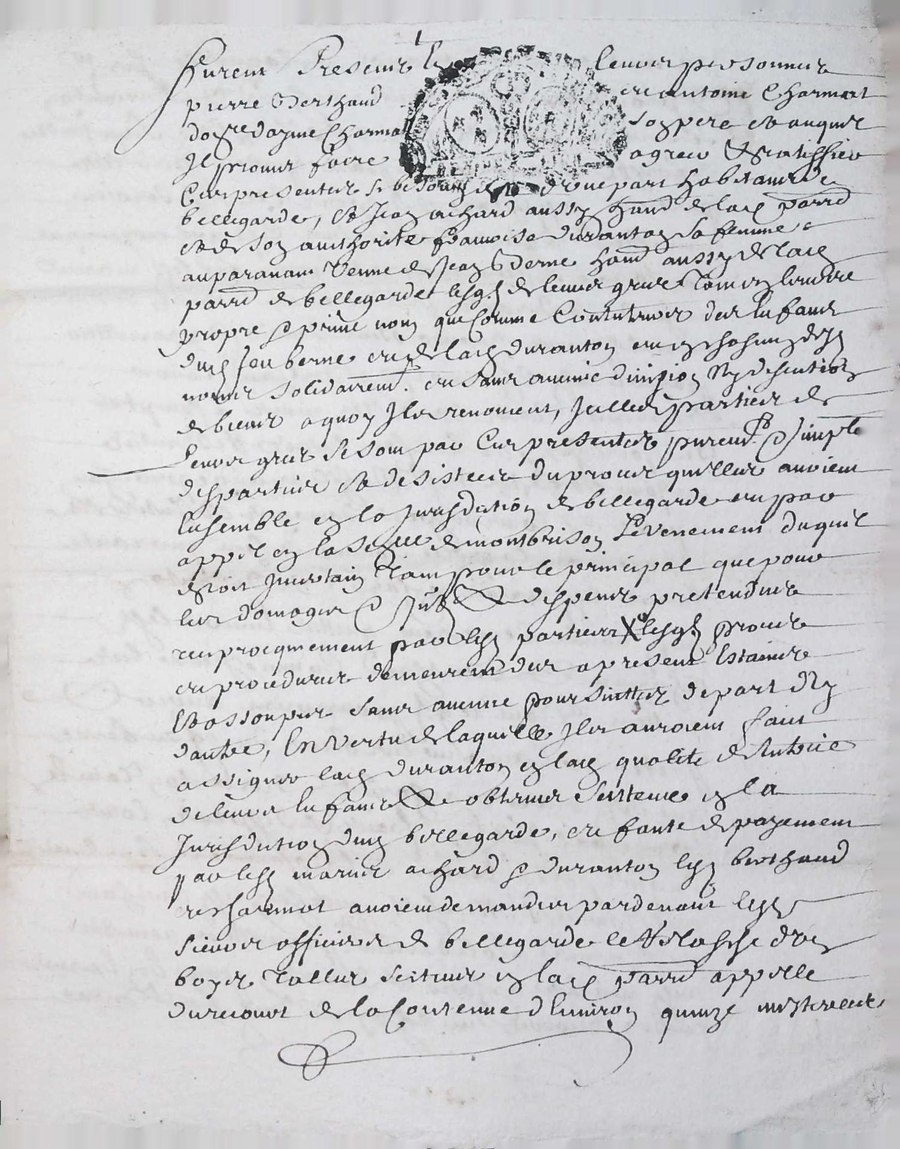 furent Presents leurs personnes
pierre Berthaud et antoine Charmat
Charmat son pere et auquel
Il promet faire agreer & ratiffier
Ces presentes si besoing est d'une part habitants de
bellegarde, et Jean achard aussy hant de lad parr
et de son authorité francoise duranton sa femme
auparavant veuve de Jean Berne hant aussy de lad
parr de bellegarde lesqls de leurs grés tant en leur
propre & privé nom que comme tutrice des enfants
dud feu berne et de lad duranton
solidairemt et sans aucune division ny discution
de biens a quoy Ils renoncent, Icelles parties de
leurs grés se sont par Ces presentes puremt & simplt
desparties et desistees du procès quelles avoient
Ensemble en la Jurisdiction de bellegarde et par
appel en la de montbrison L'evenement duquel
estoit Incertain Tant pour le principal que pour
les domages & despens pretendus
reciproquement par les parties X lesqls procès
et procedures demeurent des a present Estaints
et assoupis sans aucune poursuitte de part ny
d'autre, En vertu de laquelle Ils auroient fait
assigner lad duranton en lad qualité de tutrice
de leurs Enfants & obtenu sentence en la
Jurisdiction dud bellegarde, et faute de payement
par lesd mariés achard & duranton lesd berthaud
et charmat avoient demandé pardevant lesd
sieurs officiers de bellegarde le d'un
boys Tallis scitué en lad parr appellé
de la Contenue d'Environ quinze